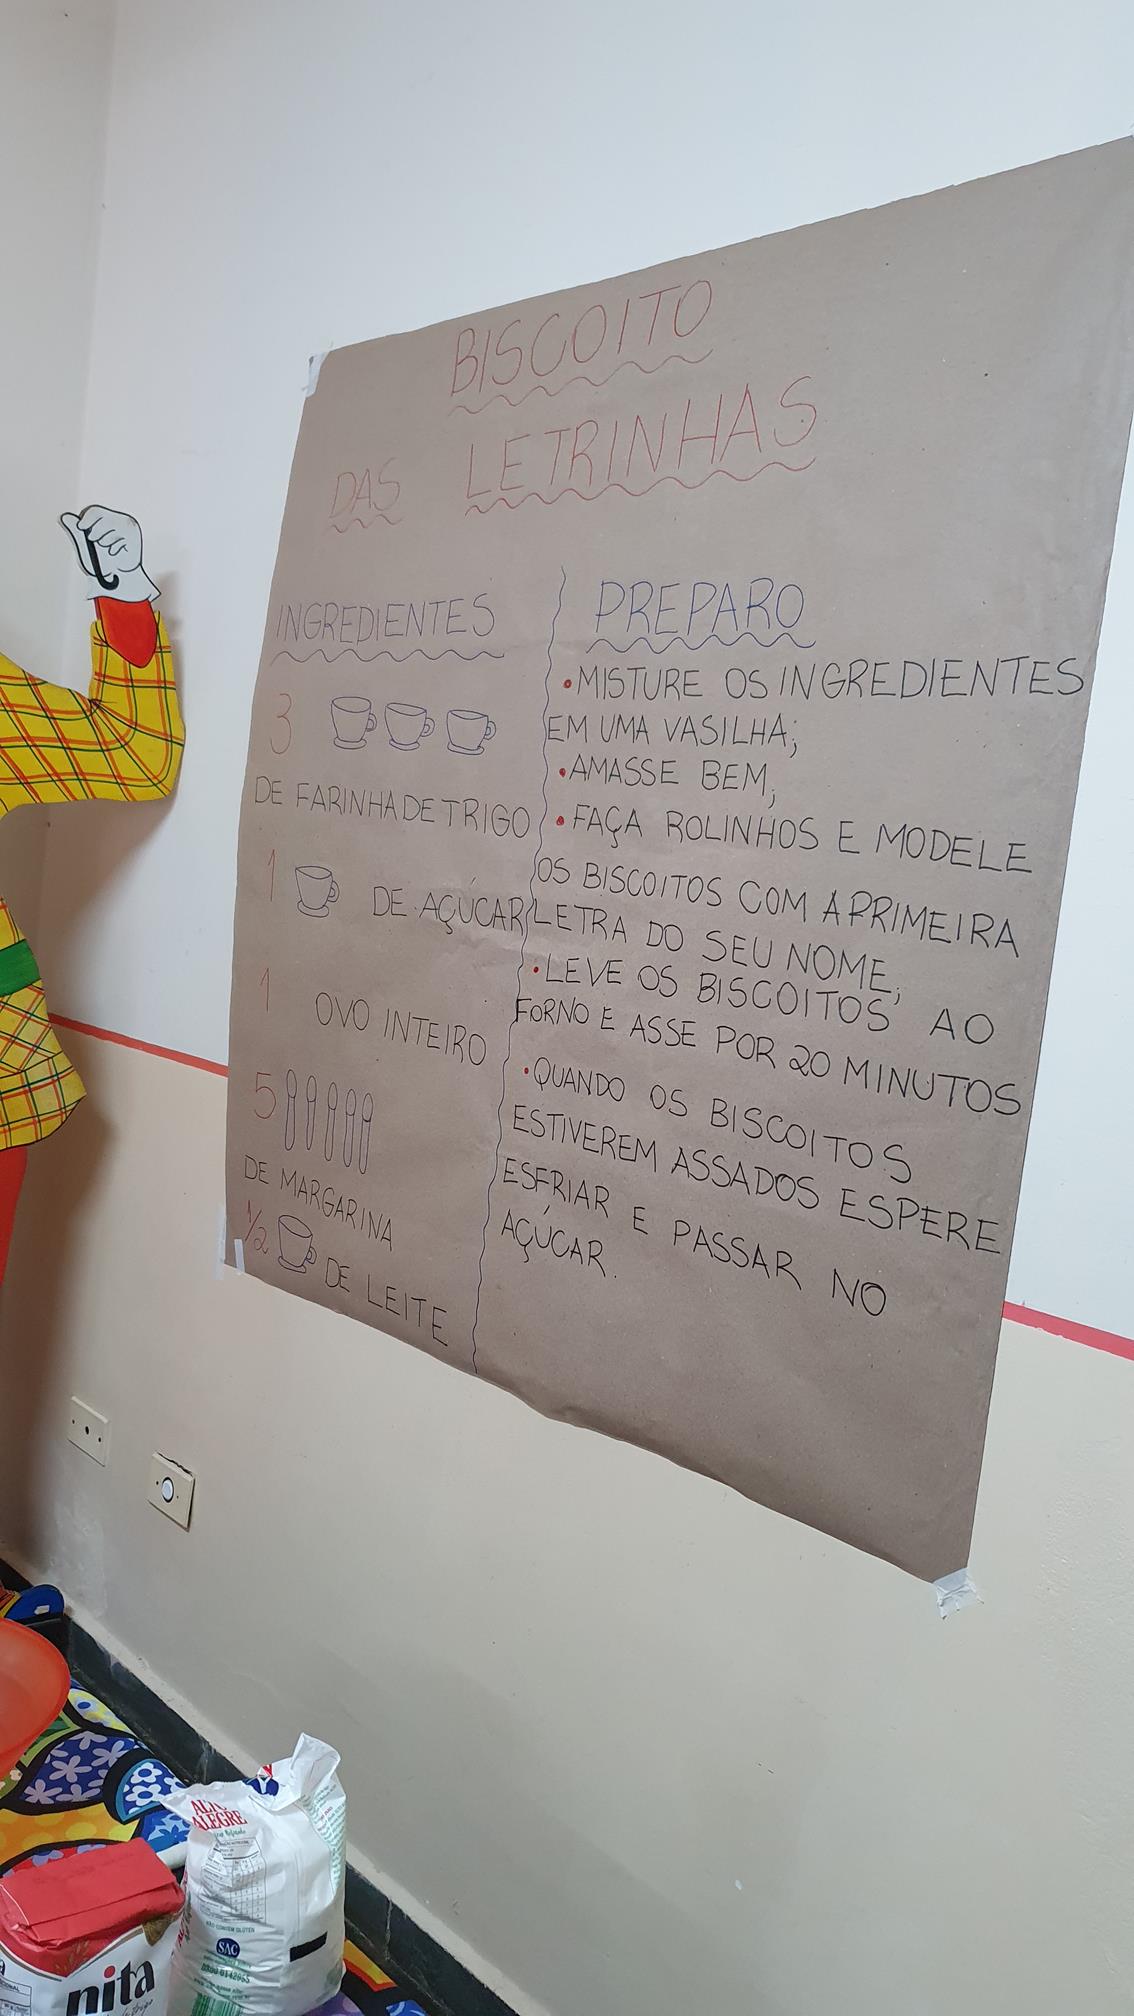 BISCOITO
DAS LETRINHAS
INGREDIENTES
3
DE FARINHA DE TRIGO
1 DE AÇÚCAR
1 OVO INTEIRO
5
DE MARGARINA
1/2 DE LEITE
PREPARO
•MISTURE OS INGREDIENTES
EM UMA VASILHA;
•AMASSE BEM;
•FAÇA ROLINHOS E MODELE
OS BISCOITOS COM A PRIMEIRA
LETRA DO SEU NOME;
•LEVE OS BISCOITOS AO
FORNO E ASSE POR 20 MINUTOS
•QUANDO OS BISCOITOS
ESTIVEREM ASSADOS ESPERE
ESFRIAR E PASSAR NO
AÇÚCAR.
ALTO
ALEGRE
NÃO CONTÉM GLÚTEN
SAC
nita